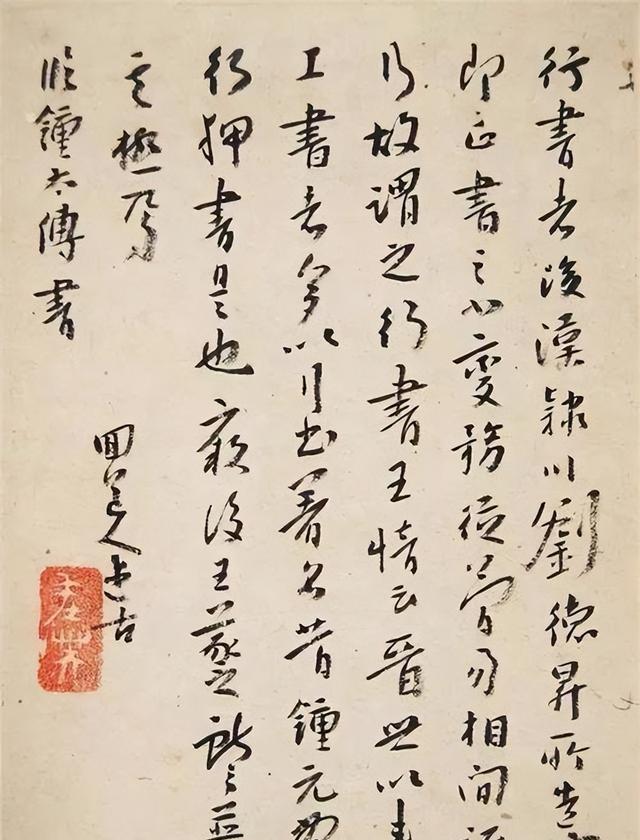 行書者後漢隸川劉德昇所造
即正書之小變務從簡易相間流
行故謂之行書王愔云晉世以來
工書者多以行書著名昔鍾元常
行押書是也厥後王羲之獻之並
其極焉
臨鍾太傅書